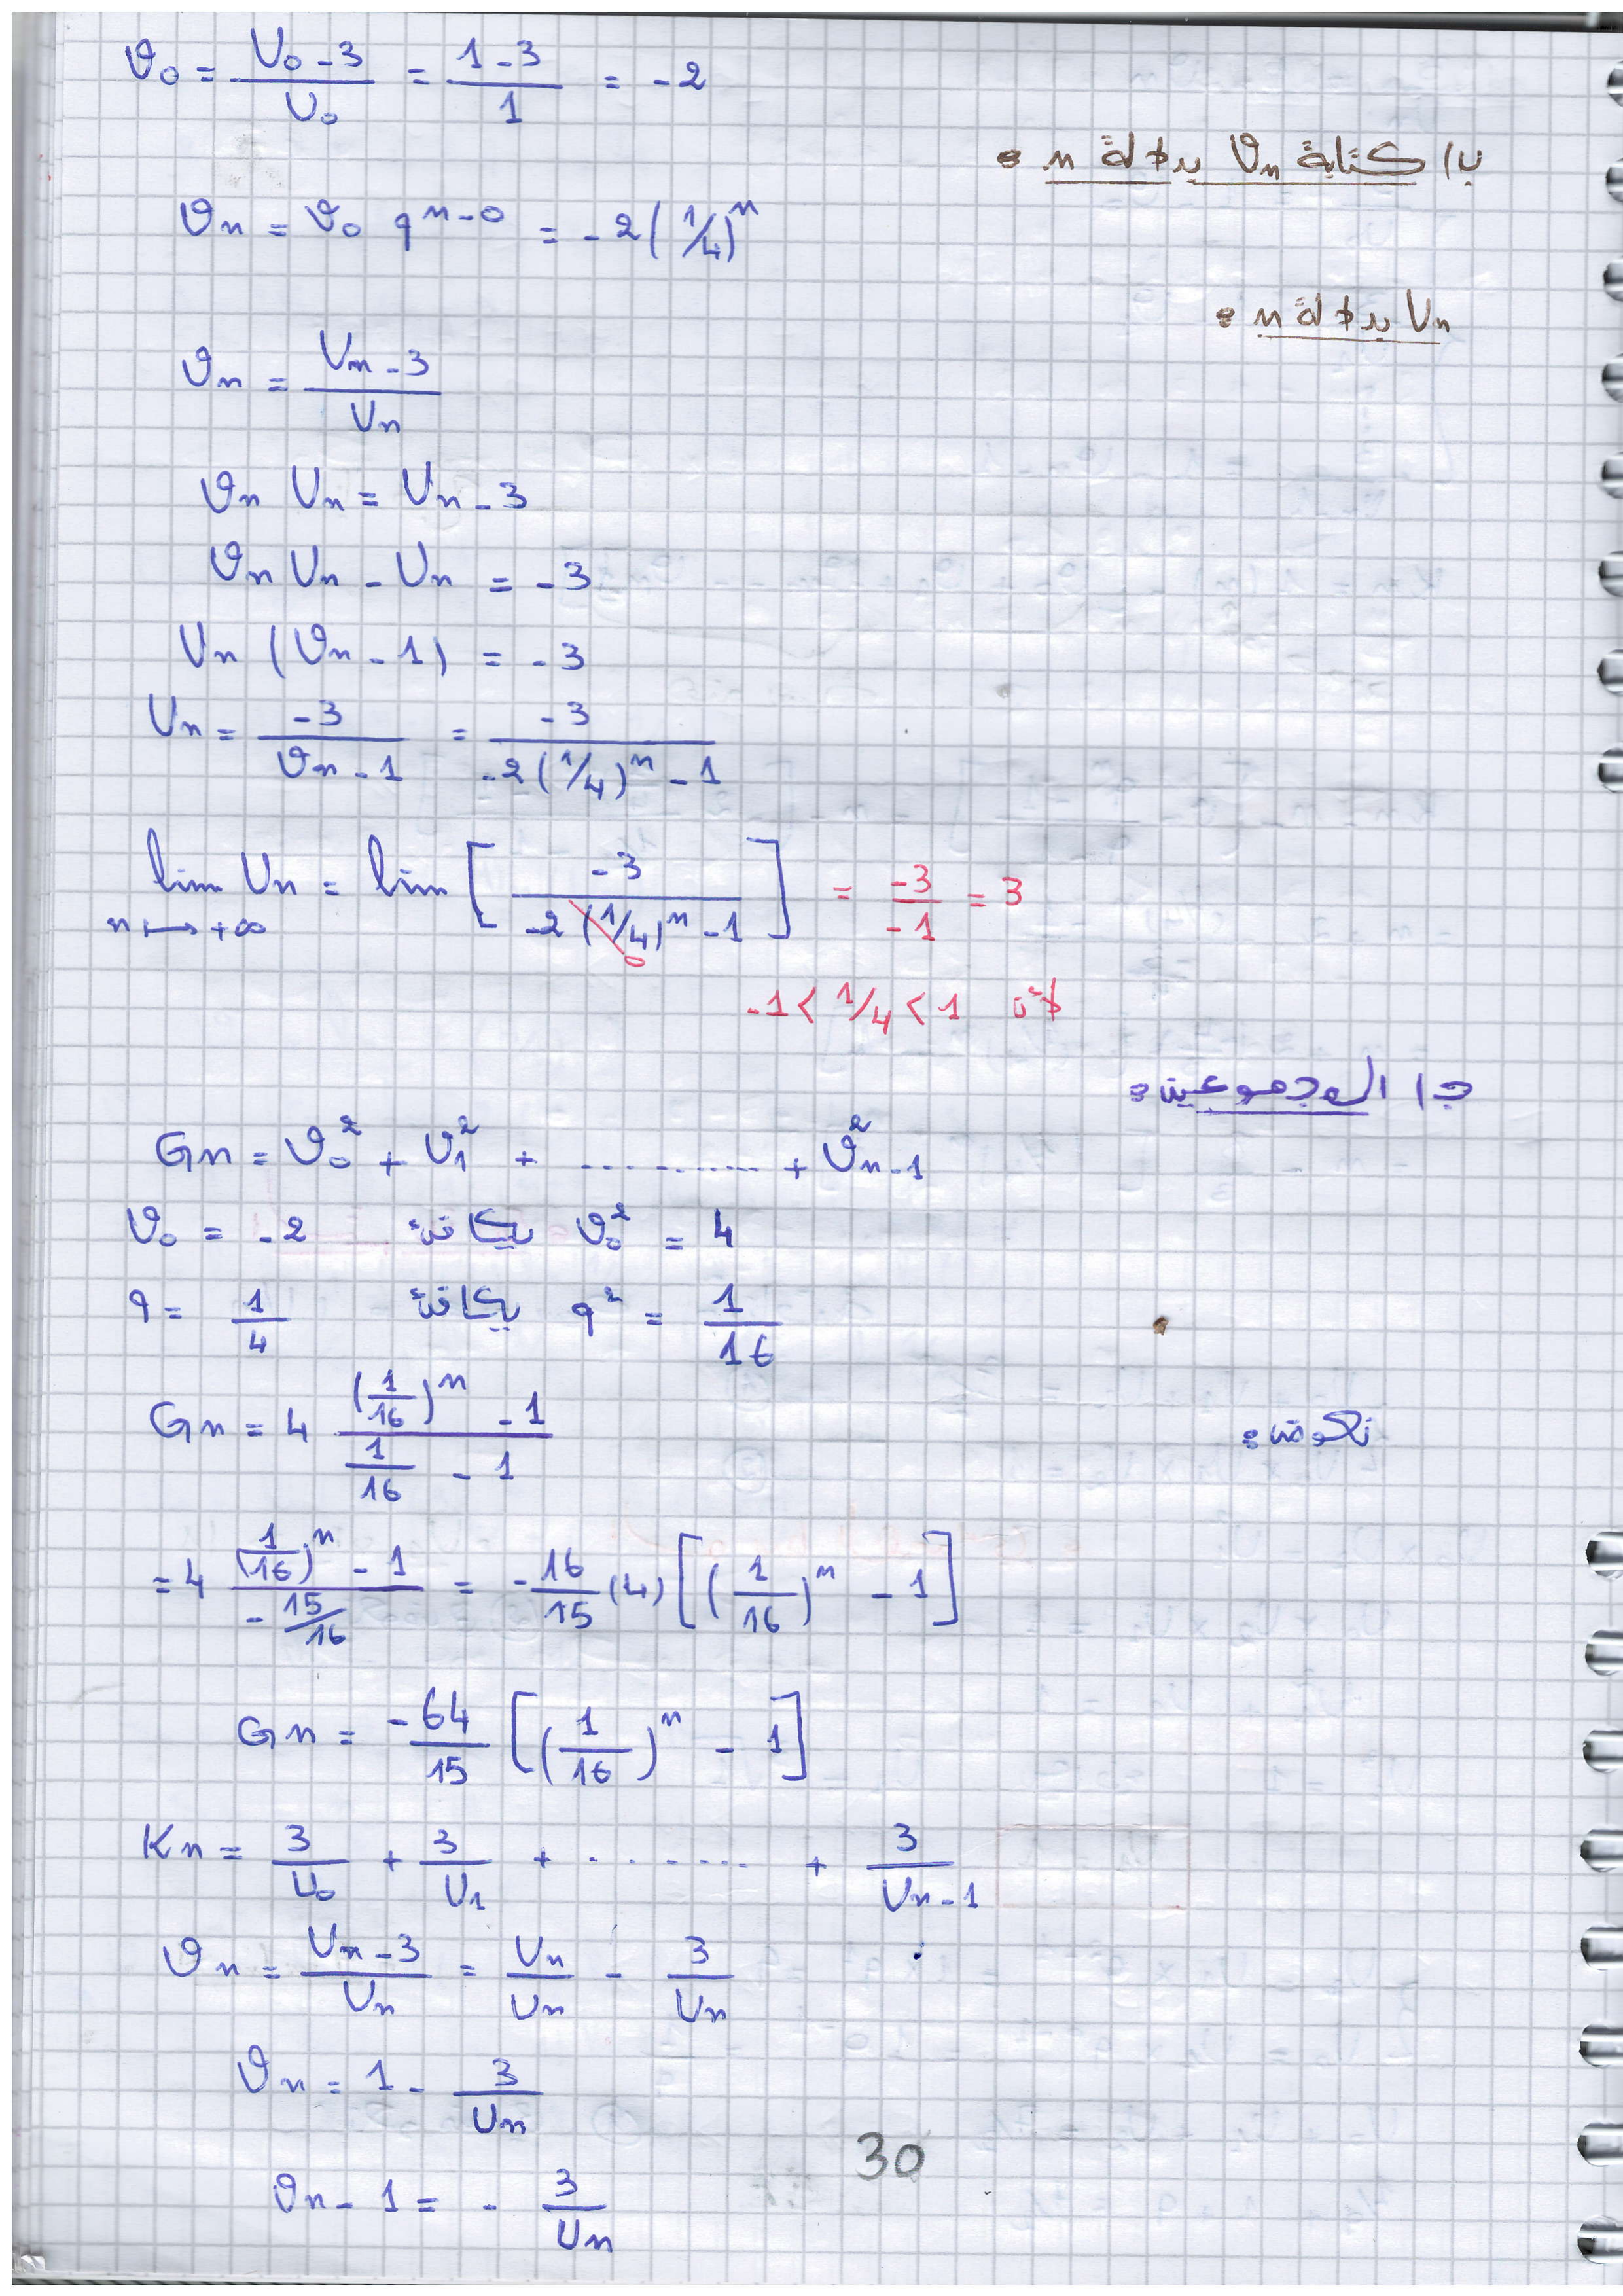 𝒱₀ = (U₀ - 3)/U₀ = (1 - 3)/1 = -2
ب/ كتابة 𝒱ₙ بدلالة n :
𝒱ₙ = 𝒱₀ q^(n-0) = -2(1/4)^n
Uₙ بدلالة n :
𝒱ₙ = (Uₙ - 3)/Uₙ
𝒱ₙ Uₙ = Uₙ - 3
𝒱ₙ Uₙ - Uₙ = -3
Uₙ (𝒱ₙ - 1) = -3
Uₙ = -3/(𝒱ₙ - 1) = -3/(-2(1/4)^n - 1)
lim Uₙ = lim [ -3/(-2(1/4)^n - 1) ] = -3/-1 = 3
n ↦ +∞
0
-1 < 1/4 < 1 لأن
ج/ المجموعين :
Gn = 𝒱₀² + 𝒱₁² + ............ + 𝒱²ₙ₋₁
𝒱₀ = -2 يكافئ 𝒱₀² = 4
q = 1/4 يكافئ q² = 1/16
Gn = 4 ((1/16)^n - 1)/(1/16 - 1) نعوض :
= 4 ((1/16)^n - 1)/(-15/16) = -16/15 (4) [ (1/16)^n - 1 ]
Gn = -64/15 [ (1/16)^n - 1 ]
Kn = 3/U₀ + 3/U₁ + ........ + 3/Uₙ₋₁
𝒱ₙ = (Uₙ - 3)/Uₙ = Uₙ/Uₙ - 3/Uₙ
𝒱ₙ = 1 - 3/Uₙ
30
𝒱ₙ - 1 = - 3/Uₙ